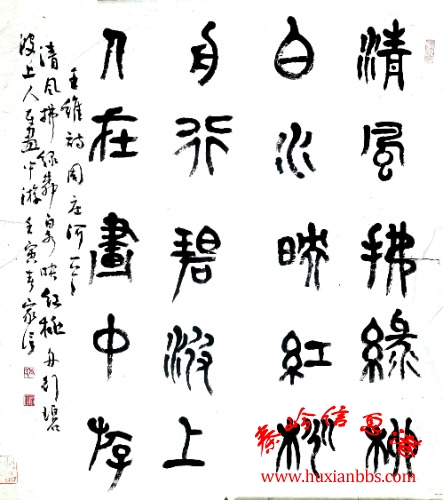 清風拂綠柳
白水映紅桃
舟行碧波上
人在畫中游
王維詩周庄河
清风拂绿柳白水映红桃舟行碧
波上人在畫中游壬寅春家信
www.huxianbbs.com